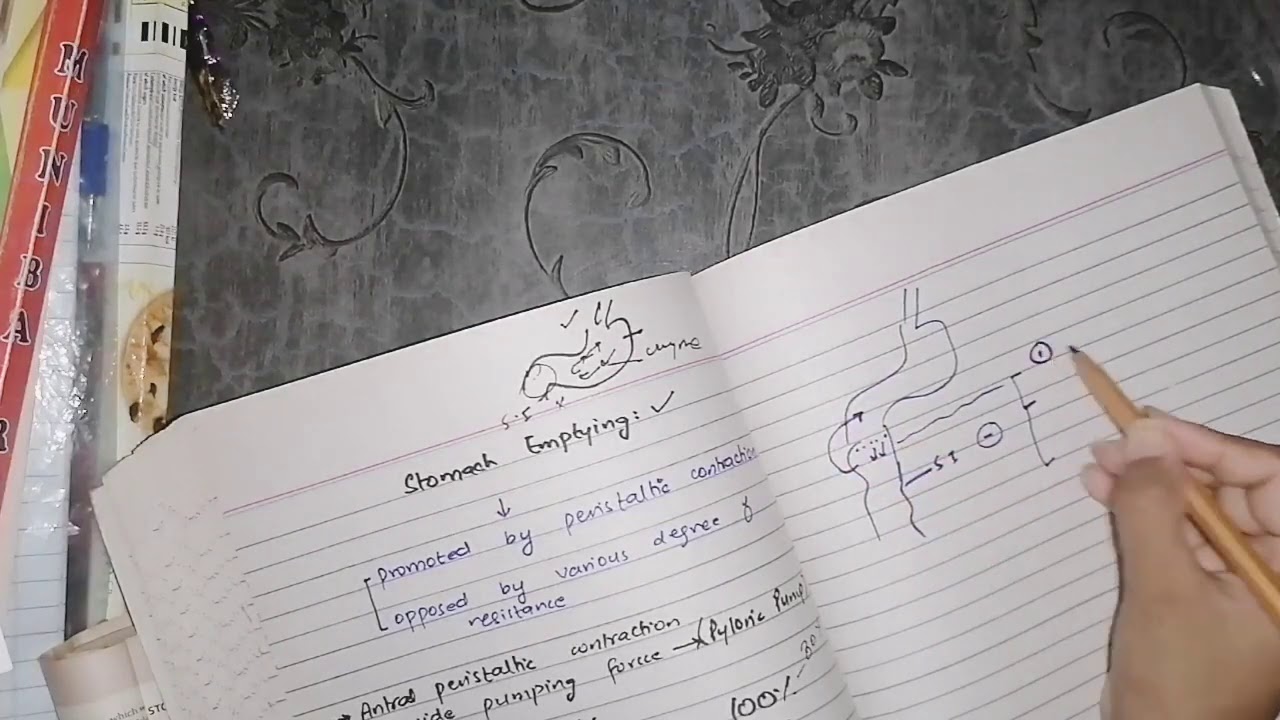 MUNIBA
R
chyme
S.I
Stomach Emptying: ✓
↓
promoted by peristaltic contraction
opposed by various degree of
resistance
Antral peristaltic contraction
pumping force → (Pyloric Pump)
100%
S I